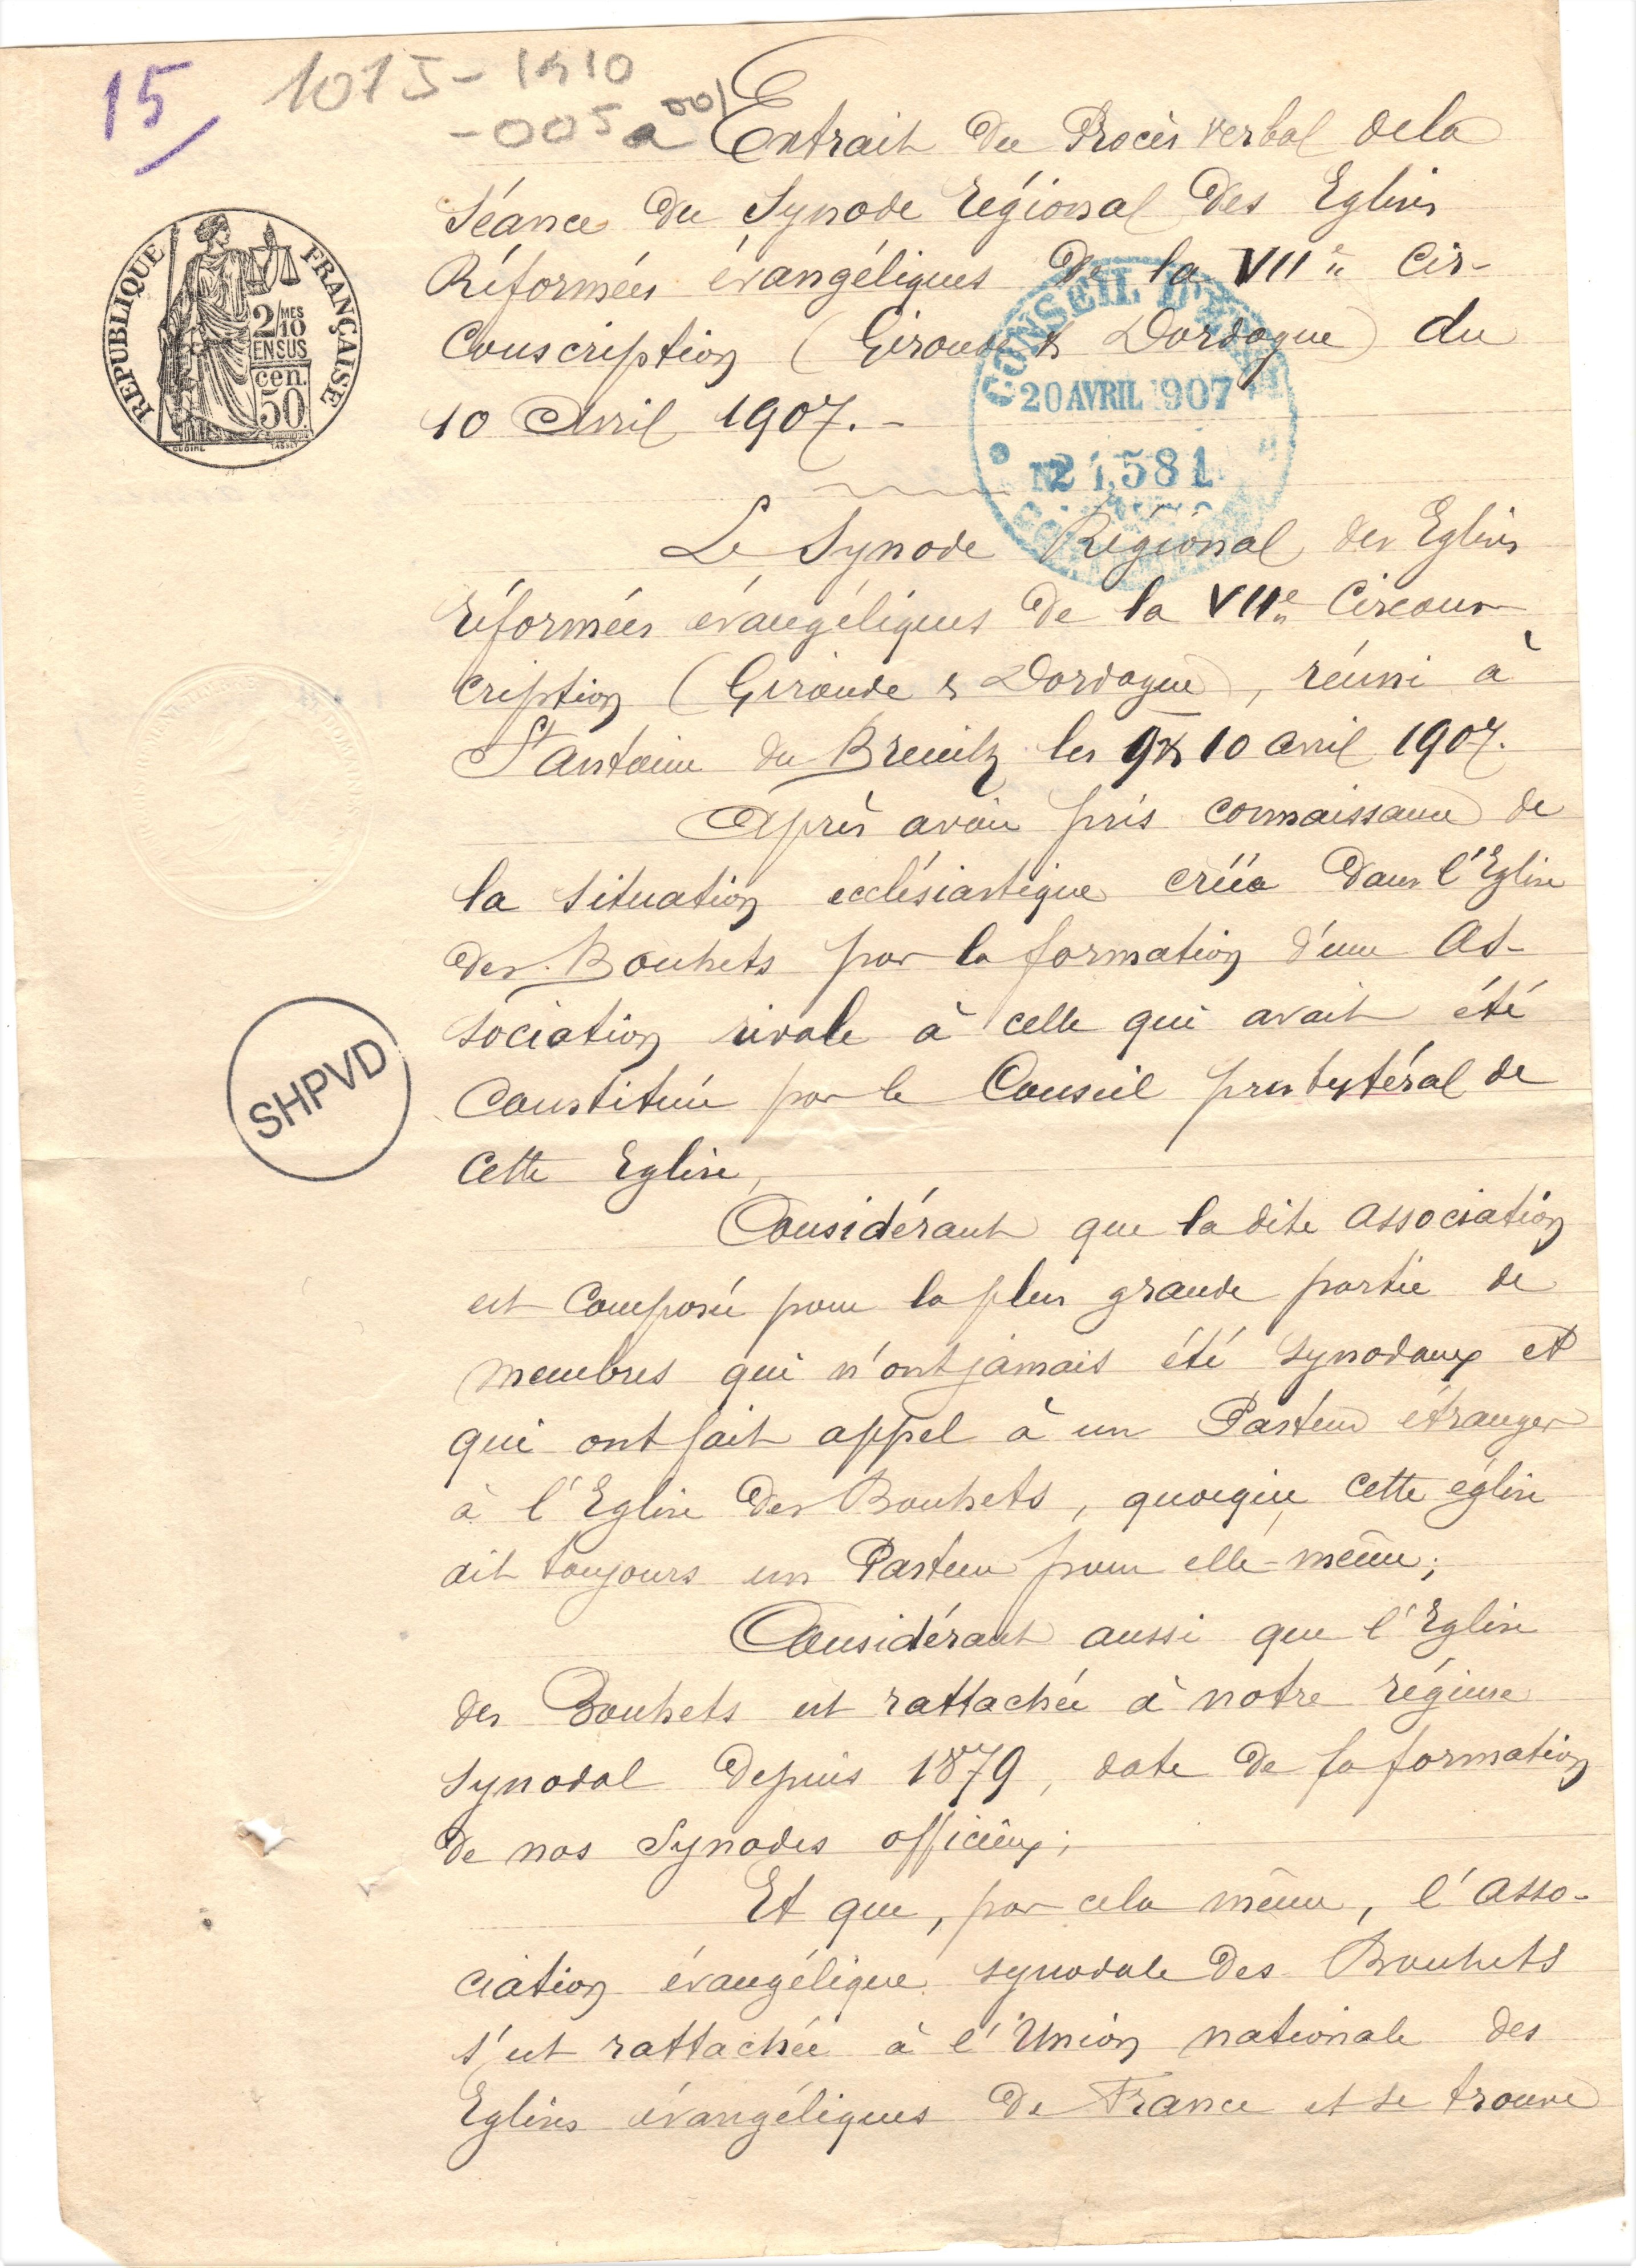 15
1075-1910
-005 a 001
Extrait du Procès verbal de la
Séance du Synode régional des Eglises
Réformées évangéliques de la VIIe Cir-
conscription (Gironde & Dordogne) du
10 Avril 1907.-
REPUBLIQUE FRANÇAISE
2/MES
10
EN SUS
50 cen.
CONSEIL D'ETAT
20 AVRIL 1907
21,581
Le Synode Régional des Eglises
réformées évangéliques de la VIIe Circons-
cription (Gironde & Dordogne), réuni à
St Antoine du Breuilh les 9 & 10 avril 1907.
Après avoir pris connaissance de
la situation ecclésiastique créée dans l'Eglise
des Bouhets par la formation d'une As-
sociation rivale à celle qui avait été
constituée par le Conseil presbytéral de
cette Eglise,
SHPVD
Considérant que la dite association
est composée pour la plus grande partie de
membres qui n'ont jamais été synodaux et
qui ont fait appel à un Pasteur étranger
à l'Eglise des Bouhets, quoique cette église
ait toujours un Pasteur pour elle-même;
Considérant aussi que l'Eglise
des Bouhets est rattachée à notre régime
synodal depuis 1879, date de la formation
de nos Synodes officieux;
Et que, par cela même, l'asso-
ciation évangélique synodale des Bouhets
s'est rattachée à l'Union nationale des
Eglises évangéliques de France et se trouve